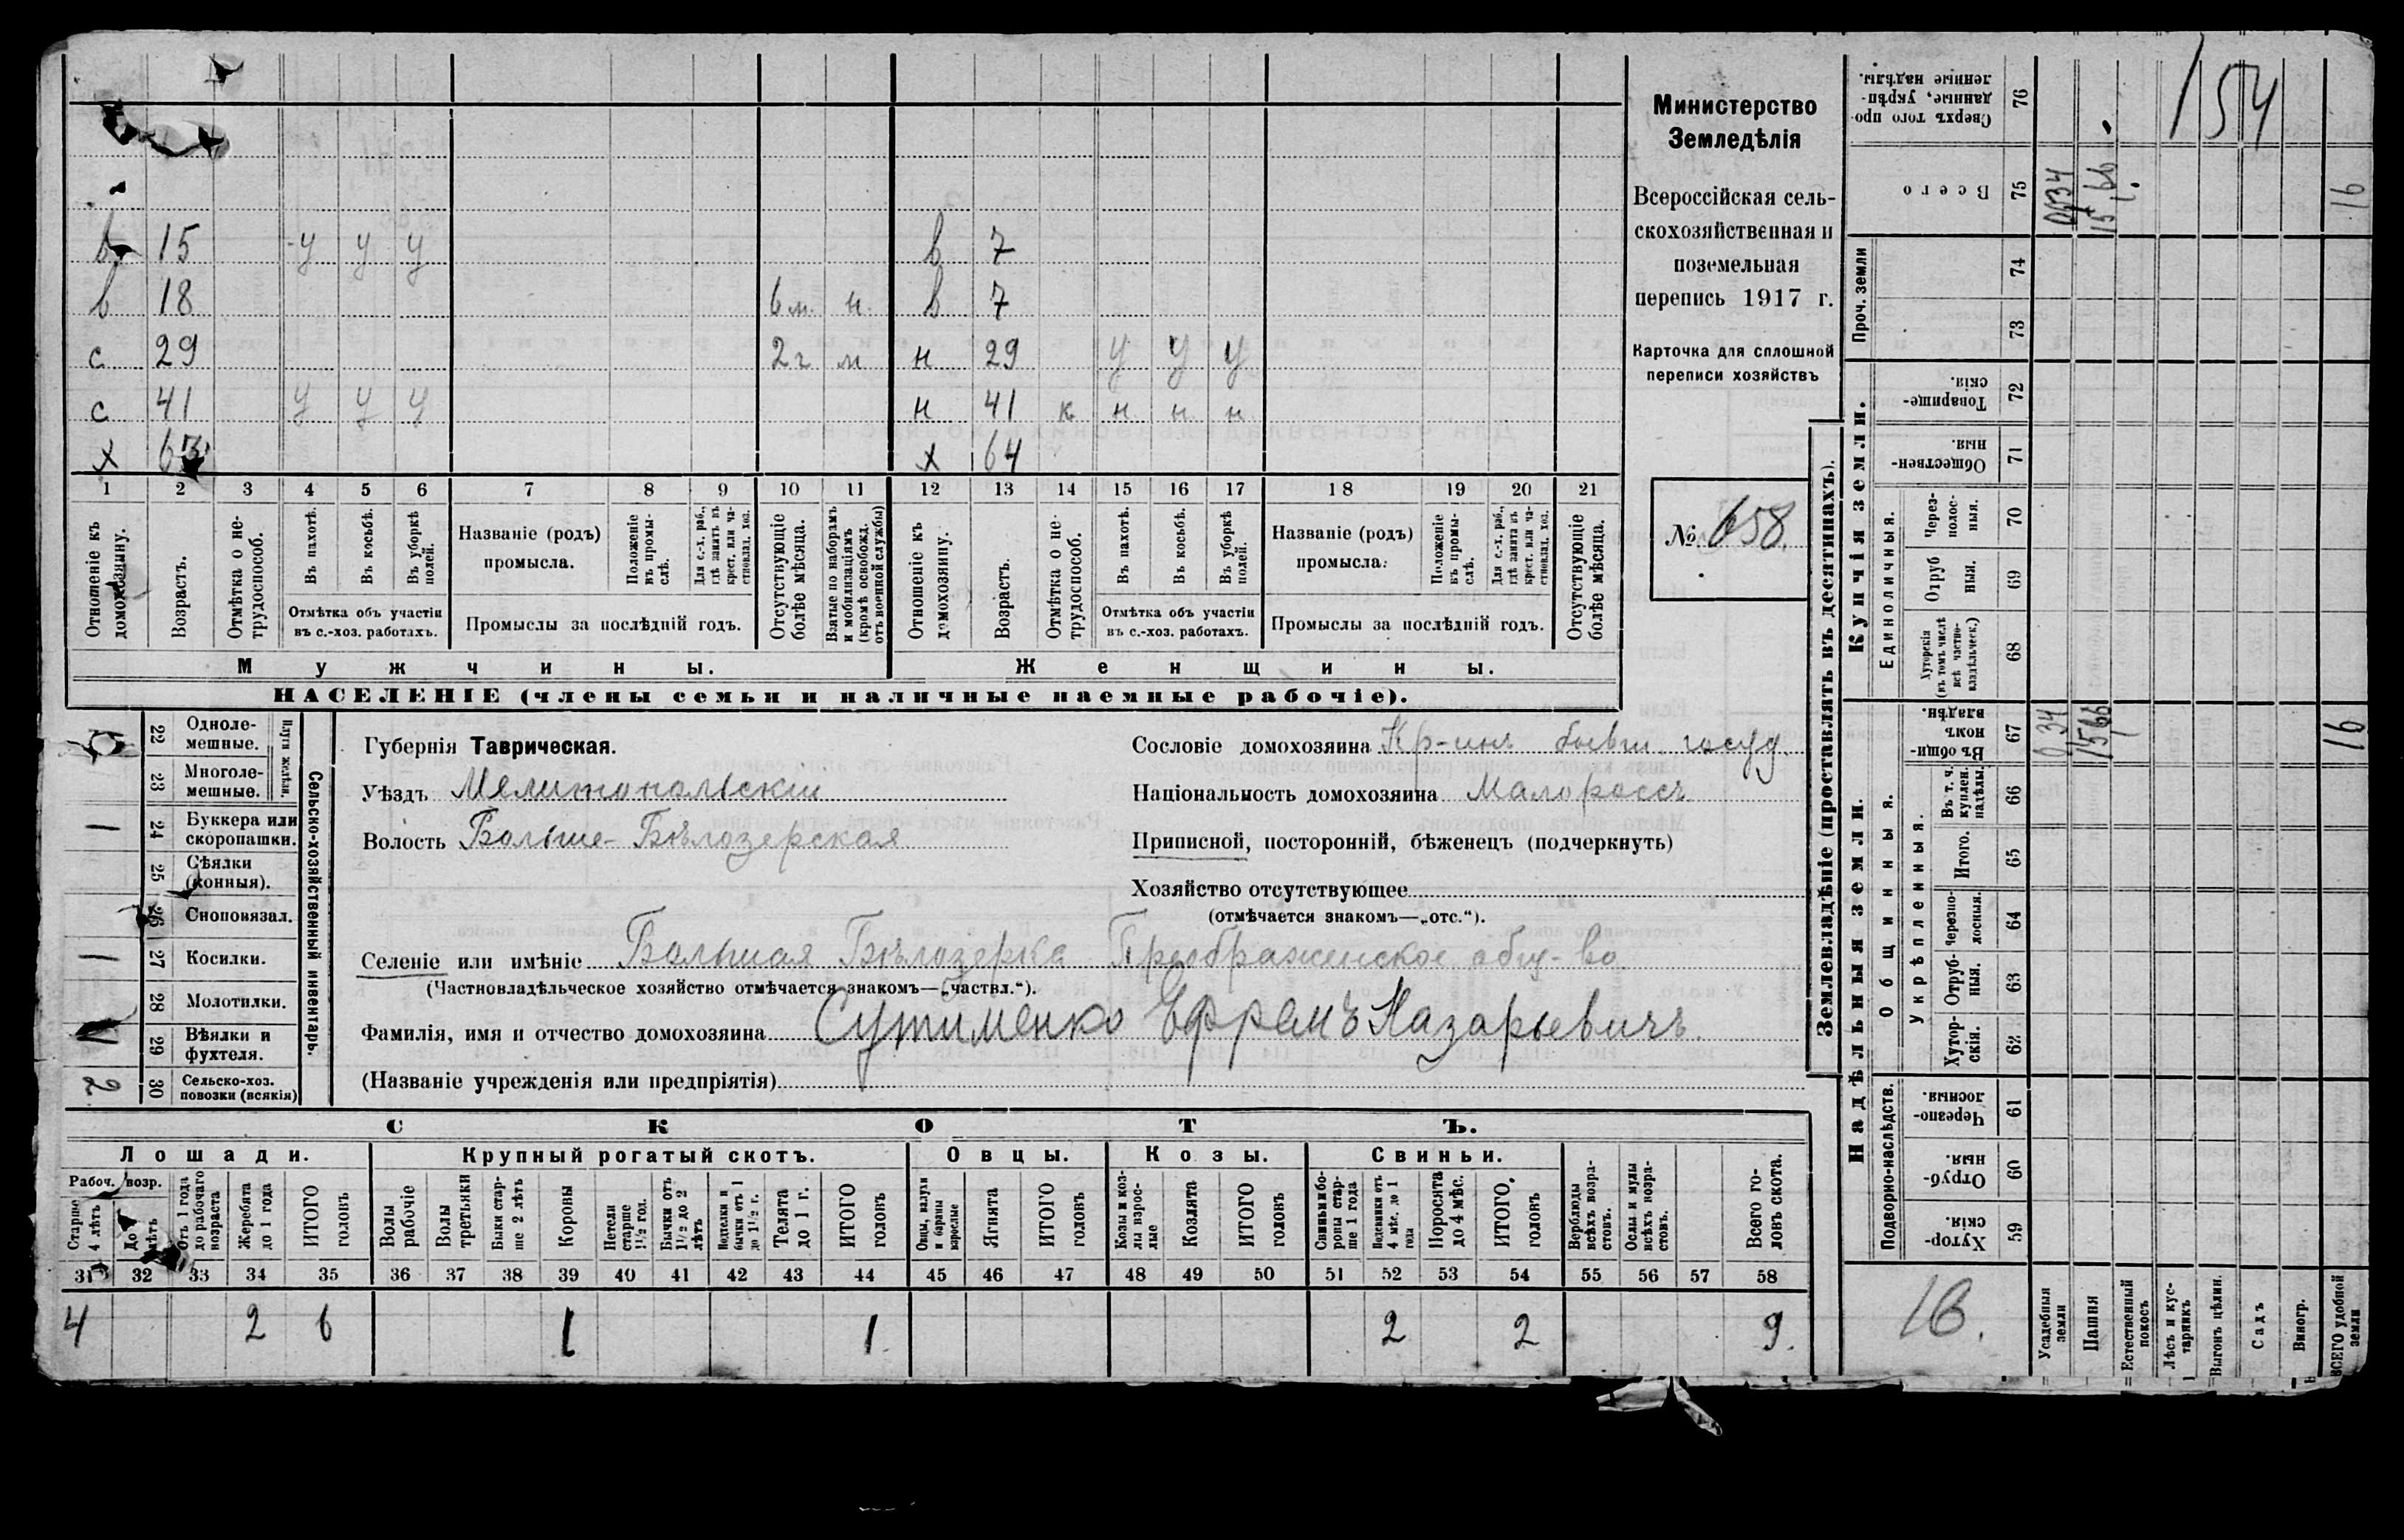 Министерство
Земледѣлія
Всероссійская сель-
скохозяйственная и
поземельная
перепись 1917 г.
Карточка для сплошной
переписи хозяйствъ
№ 658.
154
в 15 у у у в 7
в 18 6 м. н. в 7
с 29 2 г м н 29 у у у
с 41 у у у н 41 к н н н
х 63 х 64
1 2 3 4 5 6 7 8 9 10 11 12 13 14 15 16 17 18 19 20 21
Отношеніе къ домохозяину.
Возрастъ.
Отмѣтка о не-трудоспособ.
Въ пахотѣ.
Въ косьбѣ.
Въ уборкѣ полей.
Отмѣтка объ участіи
въ с.-хоз. работахъ.
Названіе (родъ)
промысла.
Положеніе въ промы-слѣ.
Для с.-х. раб., гдѣ занятъ въ крест. или ча-стновлад. хоз.
Промыслы за послѣдній годъ.
Отсутствующіе болѣе мѣсяца.
Взятые по наборамъ и мобилизаціямъ (кромѣ освобожд. отъ военной службы)
Отношеніе къ домохозяину.
Возрастъ.
Отмѣтка о не-трудоспособ.
Въ пахотѣ.
Въ косьбѣ.
Въ уборкѣ полей.
Отмѣтка объ участіи
въ с.-хоз. работахъ.
Названіе (родъ)
промысла.
Положеніе въ промы-слѣ.
Для с.-х. раб., гдѣ занята въ крест. или ча-стновлад. хоз.
Промыслы за послѣдній годъ.
Отсутствующіе болѣе мѣсяца.
Мужчины. Женщины.
НАСЕЛЕНІЕ (члены семьи и наличные наемные рабочіе).
Сельско-хозяйственный инвентарь.
Плуги желѣзн.
22 Одноле-мешные.
23 Многоле-мешные.
1 24 Буккера или скоропашки.
25 Сѣялки (конныя).
26 Сноповязал.
1 27 Косилки.
28 Молотилки.
29 Вѣялки и фухтеля.
2 30 Сельско-хоз. повозки (всякія)
Губернія Таврическая.
Уѣздъ Мелитопольскій
Волость Больше-Бѣлозерская
Сословіе домохозяина Кр-инъ бывш. госуд.
Національность домохозяина Малороссъ
Приписной, посторонній, бѣженецъ (подчеркнуть)
Хозяйство отсутствующее
(отмѣчается знакомъ—„отс.“).
Селеніе или имѣніе Большая Бѣлозерка Преображенское общ-во
(Частновладѣльческое хозяйство отмѣчается знакомъ—„частвл.“).
Фамилія, имя и отчество домохозяина Сутименко Ефремъ Назарьевичъ
(Названіе учрежденія или предпріятія)
СКОТЪ.
Лошади. Крупный рогатый скотъ. Овцы. Козы. Свиньи.
Рабоч. возр.
Старше 4 лѣтъ
До 4 лѣтъ
Отъ 1 года до рабочаго возраста
Жеребята до 1 года
ИТОГО головъ
Волы рабочіе
Волы третьяки
Быки стар-ше 2 лѣтъ
Коровы
Нетели старше 1½ год.
Бычки отъ 1½ до 2 лѣтъ
Подтелки и бычки отъ 1 до 1½ г.
Телята до 1 г.
ИТОГО головъ
Овцы, валухи и бараны взрослые
Ягнята
ИТОГО головъ
Козы и коз-лы взрос-лые
Козлята
ИТОГО головъ
Свиньи и бо-ровы стар-ше 1 года
Подсвинки отъ 4 мѣс. до 1 года
Поросята до 4 мѣс.
ИТОГО головъ
Верблюды всѣхъ возра-стовъ.
Ослы и мулы всѣхъ возра-стовъ.
Всего го-ловъ скота.
31 32 33 34 35 36 37 38 39 40 41 42 43 44 45 46 47 48 49 50 51 52 53 54 55 56 57 58
4 2 6 1 1 2 2 9.
Землевладѣніе (проставлять въ десятинахъ).
Купчія земли.
Надѣльныя земли.
Сверхъ того про-данные, укрѣп-ленные надѣлы. 76
Всего 75 0,34 15,66 16
Проч. земли 74 73
Товарище-скія. 72
Обществен-ныя. 71
Единоличныя.
Через-полос-ныя. 70
Отруб-ныя. 69
Хуторскія (въ томъ числѣ всѣ частно-владѣльческ.) 68
Общинныя.
Въ общи-номъ владѣн. 67 0,34 15,66 16
Укрѣпленныя.
Въ т. ч. куплен. надѣлы. 66
Итого. 65
Черезпо-лосныя. 64
Отруб-ныя. 63
Хутор-скія. 62
Подворно-наслѣдств.
Черезпо-лосныя. 61
Отруб-ныя 60
Хутор-скія 59
16.
Усадебныя земли
Пашня
Естественный покосъ
Лѣсъ и кус-тарникъ
Выгонъ цѣлин.
Садъ
Виногр.
ВСЕГО удобной земли